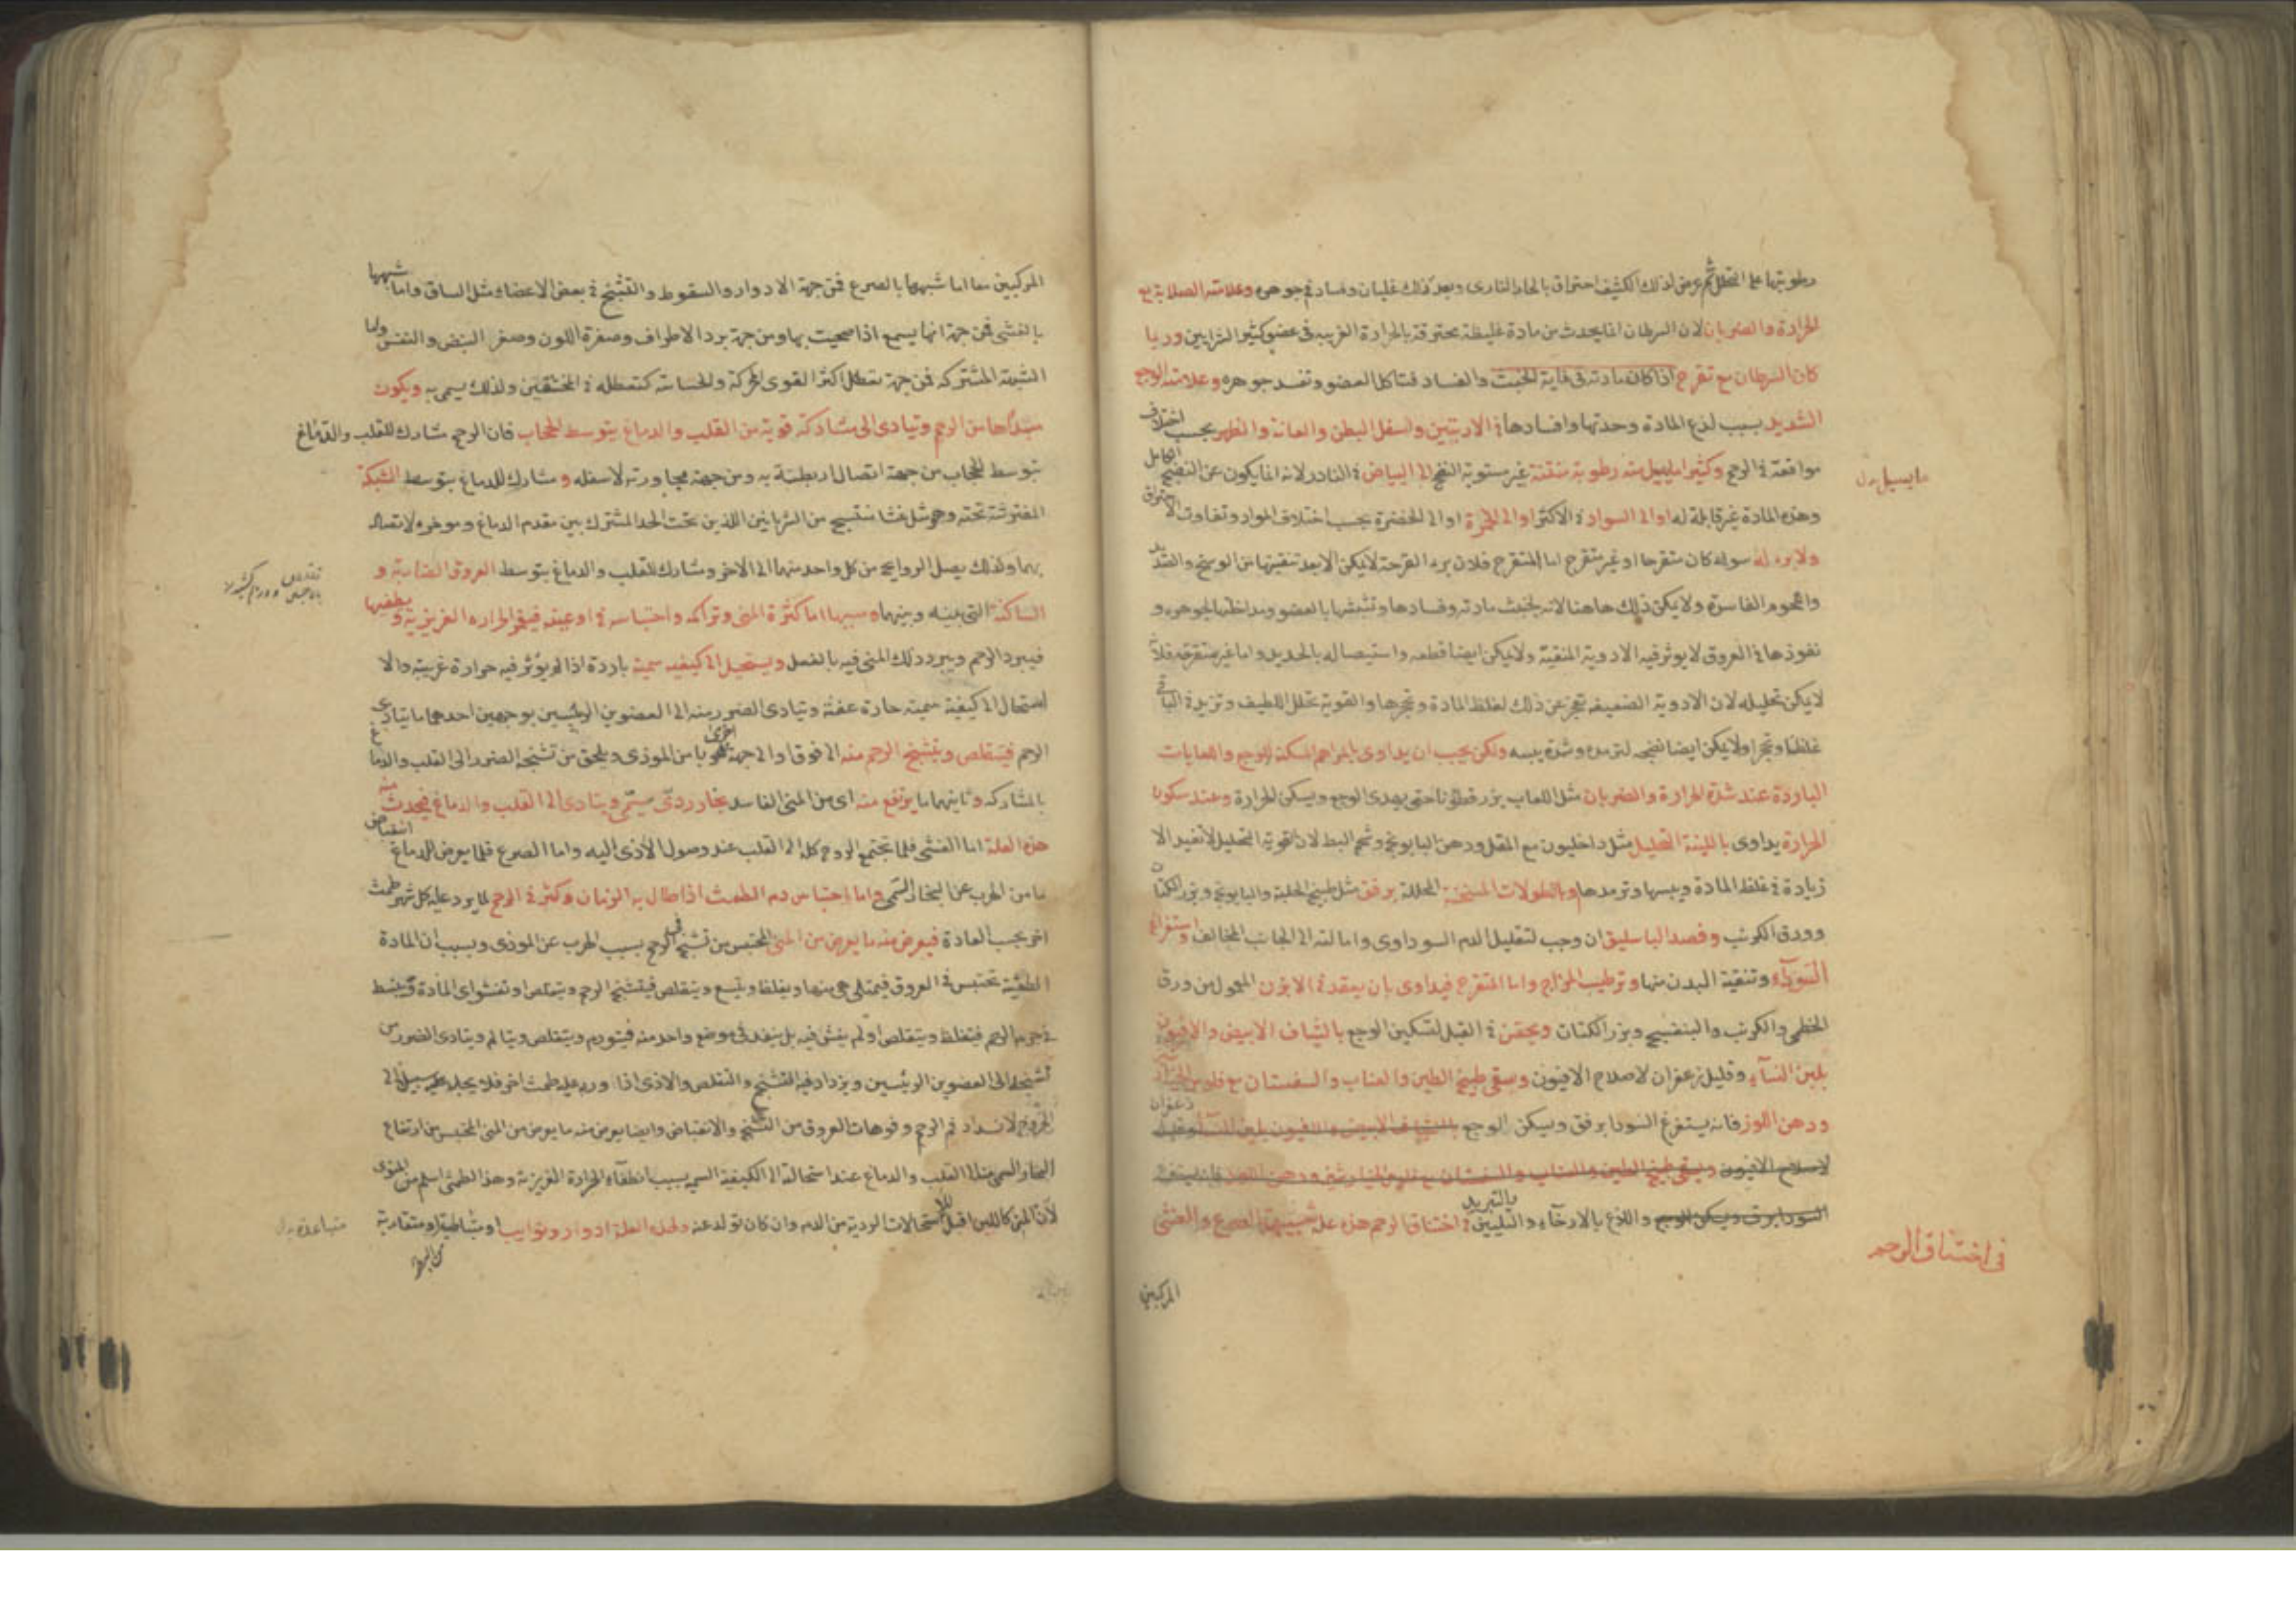 رطوبتها على التحلل ثم عرض لذلك الكثيف احتراق بالحار الناري وبعد ذلك غليان وفساد في جوهره وعلامته الصلابة مع
الحرارة والضربان لان السرطان انما يحدث من مادة غليظة محترقة بالحرارة الغريبة في عضو كثير الشرايين وربما
كان السرطان مع تقرح اذا كان مادته في غاية الخبث والفساد فتاكل العضو وتفسد جوهره وعلامته الوجع
الشديد بسبب لذع المادة وحدتها وافسادها في الاربيتين واسفل البطن والعانة والظهر بحسب اختلاف
مواقعه في الرحم وكثيرا ما يسيل منه رطوبة منتنة غير مستوية النضج الى البياض في النادر لانه انما يكون عن النضج الكامل
ما يسيل
وهذه المادة غير قابلة له او الى السواد في الاكثر او الى الحمرة او الى الخضرة بحسب اختلاف المواد وتفاوت الاحتراق
ولا برء له سواء كان متقرحا او غير متقرح اما المتقرح فلان برء القرحة لا يمكن الا بعد تنقيتها من الوسخ والصديد
واللحوم الفاسدة ولا يمكن ذلك هاهنا لانه لخبث مادته وفسادها وتشبثها بالعضو ومداخلتها لجوهره و
نفوذها في العروق لا يوثر فيه الادوية المنقية ولا يمكن ايضا قطعه واستيصاله بالحديد واما غير متقرحه فلانه
لا يمكن تحليله لان الادوية الضعيفة تعجز عن ذلك لغلظ المادة وتحجرها والقوية تحلل اللطيف وتزيد في الباقي
غلظا وتحجرا ولا يمكن ايضا نضجه لترمده وشدة يبسه ولكن يجب ان يداوى بالمراهم المسكنة للوجع واللعابات
الباردة عند شدة الحرارة والضربان مثل اللعاب بزر قطونا حتى يهدى الوجع ويسكن الحرارة وعند سكون
الحرارة يداوى بالملينة التحليل مثل داخليون مع المقل ودهن البابونج وشحم البط لان القوية التحليل لا تفيد الا
زيادة في غلظ المادة ويبسها وترمدها وبالنطولات المسخنة المحللة برفق مثل طبيخ الحلبة والبابونج وبزر الكتان
وورق الكرنب وفصد الباسليق ان وجب لتقليل الدم السوداوي وامالته الى الجانب المخالف واستفراغ
السوداء وتنقية البدن منها وترطيب المزاج واما المتقرح فيداوى بان يقعد في الابزن المعمول من ورق
الخطمي والكرنب والبنفسج وبزر الكتان ويحقن في القبل لتسكين الوجع بالشياف الابيض والافيون
بلبن النساء وقليل زعفران لاصلاح الافيون وسقي طبيخ الطين والعناب والسفستان مع فلوس
ودهن اللوز فانه يستفرغ السودا برفق ويسكن الوجع بالشياف الابيض والافيون بلبن النساء وقليل زعفران
لاصلاح الافيون وسقي طبيخ الطين والعناب والسفستان مع فلوس الخيارشنبر ودهن اللوز فانه يستفرغ
السودا برفق ويسكن الوجع واللذع بالارخاء والتليين بالتبريد في اختناق الرحم هذه علة شبيهة بالصرع والغشي
في اختناق الرحم
المركبين
المركبين معا اما شبهها بالصرع فمن جهة الادوار والسقوط والتشنج في بعض الاعضاء مثل الساق واما شبهها
بالغشي فمن جهة انها يسمع اذا صحيت بها ومن جهة برد الاطراف وصفرة اللون وصغر النبض والنفس واما
الشبهة المشتركة فمن جهة تعطل اكثر القوى المحركة والحساسة كتعطله في المختنقين ولذلك يسمى به ويكون
مبداها من الرحم وتيادى الى مشاركة قوية من القلب والدماغ بتوسط الحجاب فان الرحم مشارك للقلب والدماغ
بتوسط الحجاب من جهة اتصال اربطته به ومن جهة مجاورته لاسفله ومشارك للدماغ بتوسط الشبكة
المفتوشة تحته وهو مثل غشا منتسج من الشريانين اللذين تحت الحد المشترك بين مقدم الدماغ وموخره لاتصاله
بهما ولذلك يصل الروايح من كل واحد منهما الى الاخر ومشارك للقلب والدماغ بتوسط العروق الضاربة و
الساكنة التي بينه وبينهما وسببها اما كثرة المني وتراكمه واحتباسه في اوعيته فيقهر الحرارة الغريزية ويطفيها
فيبرد الرحم ويبرد ذلك المني فيه بالفعل ويستحيل الى كيفية سمية باردة اذا لم يوثر فيه حرارة غريبة والا
استحال الى كيفية سمية حارة عفنة ويتادى الضرر منه الى العضوين الرئيسين بوجهين احدهما ما يتادى
الرحم فيتقلص ويتشنج الرحم منه الى فوق او الى جهة اخرى هربا من الموذي ويلحق من تشنجه الضرر الى القلب والدماغ
بالمشاركة وثانيهما ما يرتفع منه اي من المني الفاسد بخار ردي سمي ويتادى الى القلب والدماغ فيحدث منه
هذه العلة اما الغشي فلما يجتمع الروح كله الى القلب عند وصول الاذى اليه واما الصرع فلما يعرض للدماغ انقباض
ما من الهرب عن البخار السمي واما احتباس دم الطمث اذا طال به الزمان وكثر في الرحم لما يرد عليه كل شهر طمث
اخر بحسب العادة فيعرض منه ما يعرض من المني المحتبس من تشنج في الرحم بسبب الهرب عن الموذي وبسبب ان المادة
الطمثية تحتبس في العروق فيمتلي هي منها ويغلظ ويتسع ويتقلص فيتشنج الرحم ويتقلص او تفشو اي المادة وتنبسط
في جرم الرحم فيتغلظ ويتقلص او لم يفش فيه بل ينفذ في موضع واحد منه فيتورم ويتقلص ويتالم ويتادى الضرر من
تشنجه الى العضوين الرئيسين ويزداد فيه التشنج والتقلص والاذى اذا ورد عليه طمث اخر فلا يجد سبيلا الى
الخروج لانسداد فم الرحم وفوهات العروق من التشنج والانقباض وايضا يعرض منه ما يعرض من المني المحتبس من ارتفاع
البخار السمي منه الى القلب والدماغ عند استحالته الى الكيفية السمية بسبب انطفاء الحرارة الغريزية وهذا الطمثي اسلم من المنوي
لان المني كاللبن اقبل للاستحالات الردية من الدم وان كان تولد عنه ولهذه العلة ادوار ونوايب او متباعدة او متقاربة
متباعدة